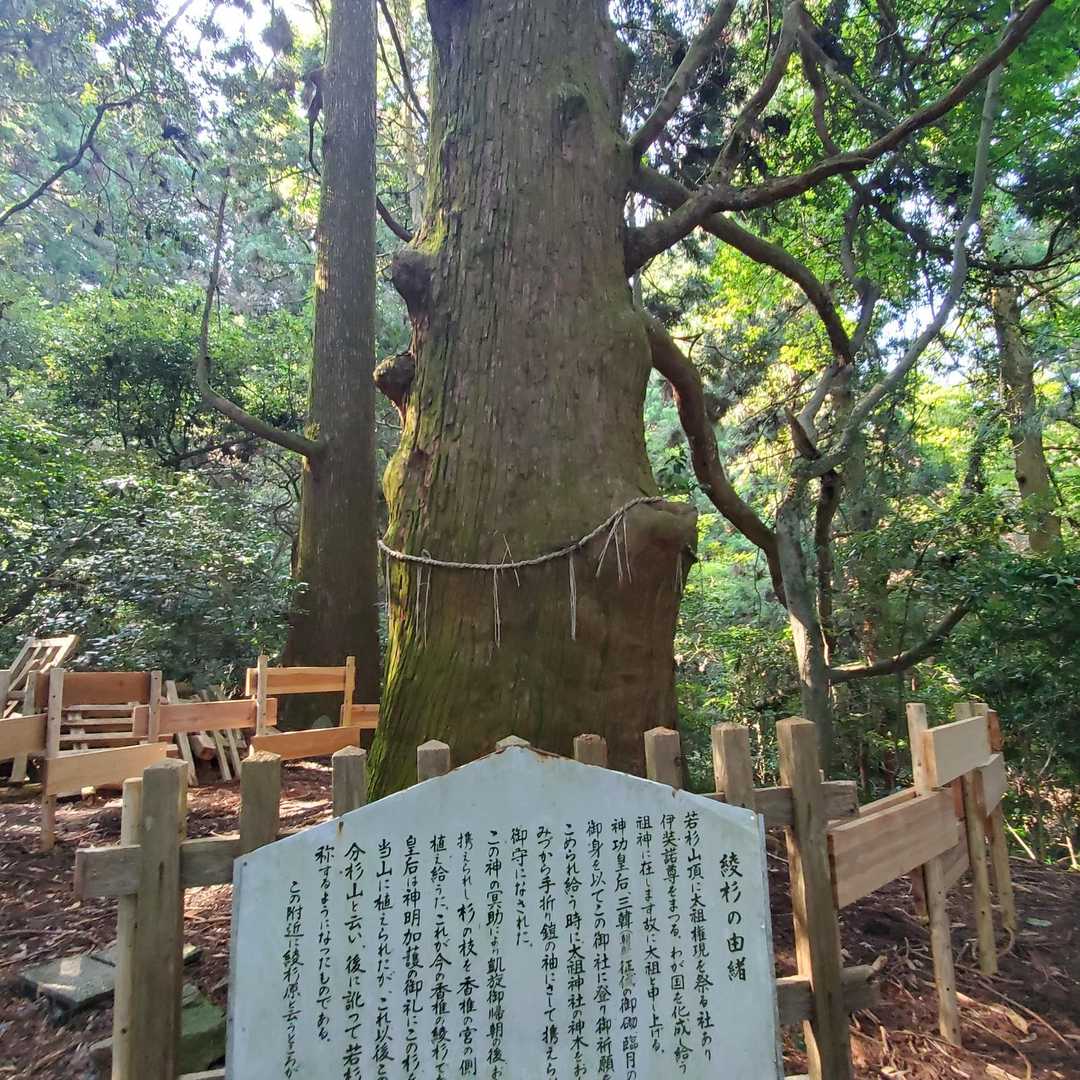 綾杉の由緒
若杉山頂に太祖権現を祭る社あり
伊弉諾尊をまつる。わが国を化成し給う
祖神に在します故に太祖と申し上げる。
神功皇后、三韓征伐の御砌臨月の
御身を以てこの御社に登り御祈願を
こめられ給う時に太祖神社の神木をお
みづから手折り鎧の袖にさして携えら
御守になされた。
この神の冥助により凱旋御帰朝の後お
携えられし杉の枝を香椎の宮の側
植え給うた。これが今の香椎の綾杉で
皇后は神明加護の御礼にこの杉を
当山に植えられたが、これ以後この
分杉山と云い、後に訛って若杉
称するようになったものである。
この附近に綾杉原と云うところが